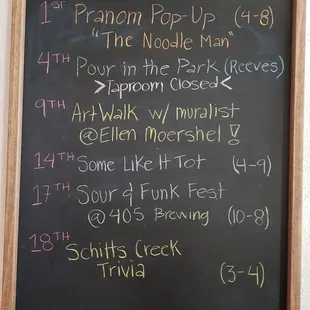 1ST Pranom Pop-Up (4-8)
"The Noodle Man"
4TH Pour in the Park (Reeves)
>Taproom Closed<
9TH ArtWalk w/ muralist
@Ellen Moershel !
14TH Some Like It Tot (4-9)
17TH Sour & Funk Fest
@ 405 Brewing (10-8)
18TH Schitts Creek
Trivia (3-4)